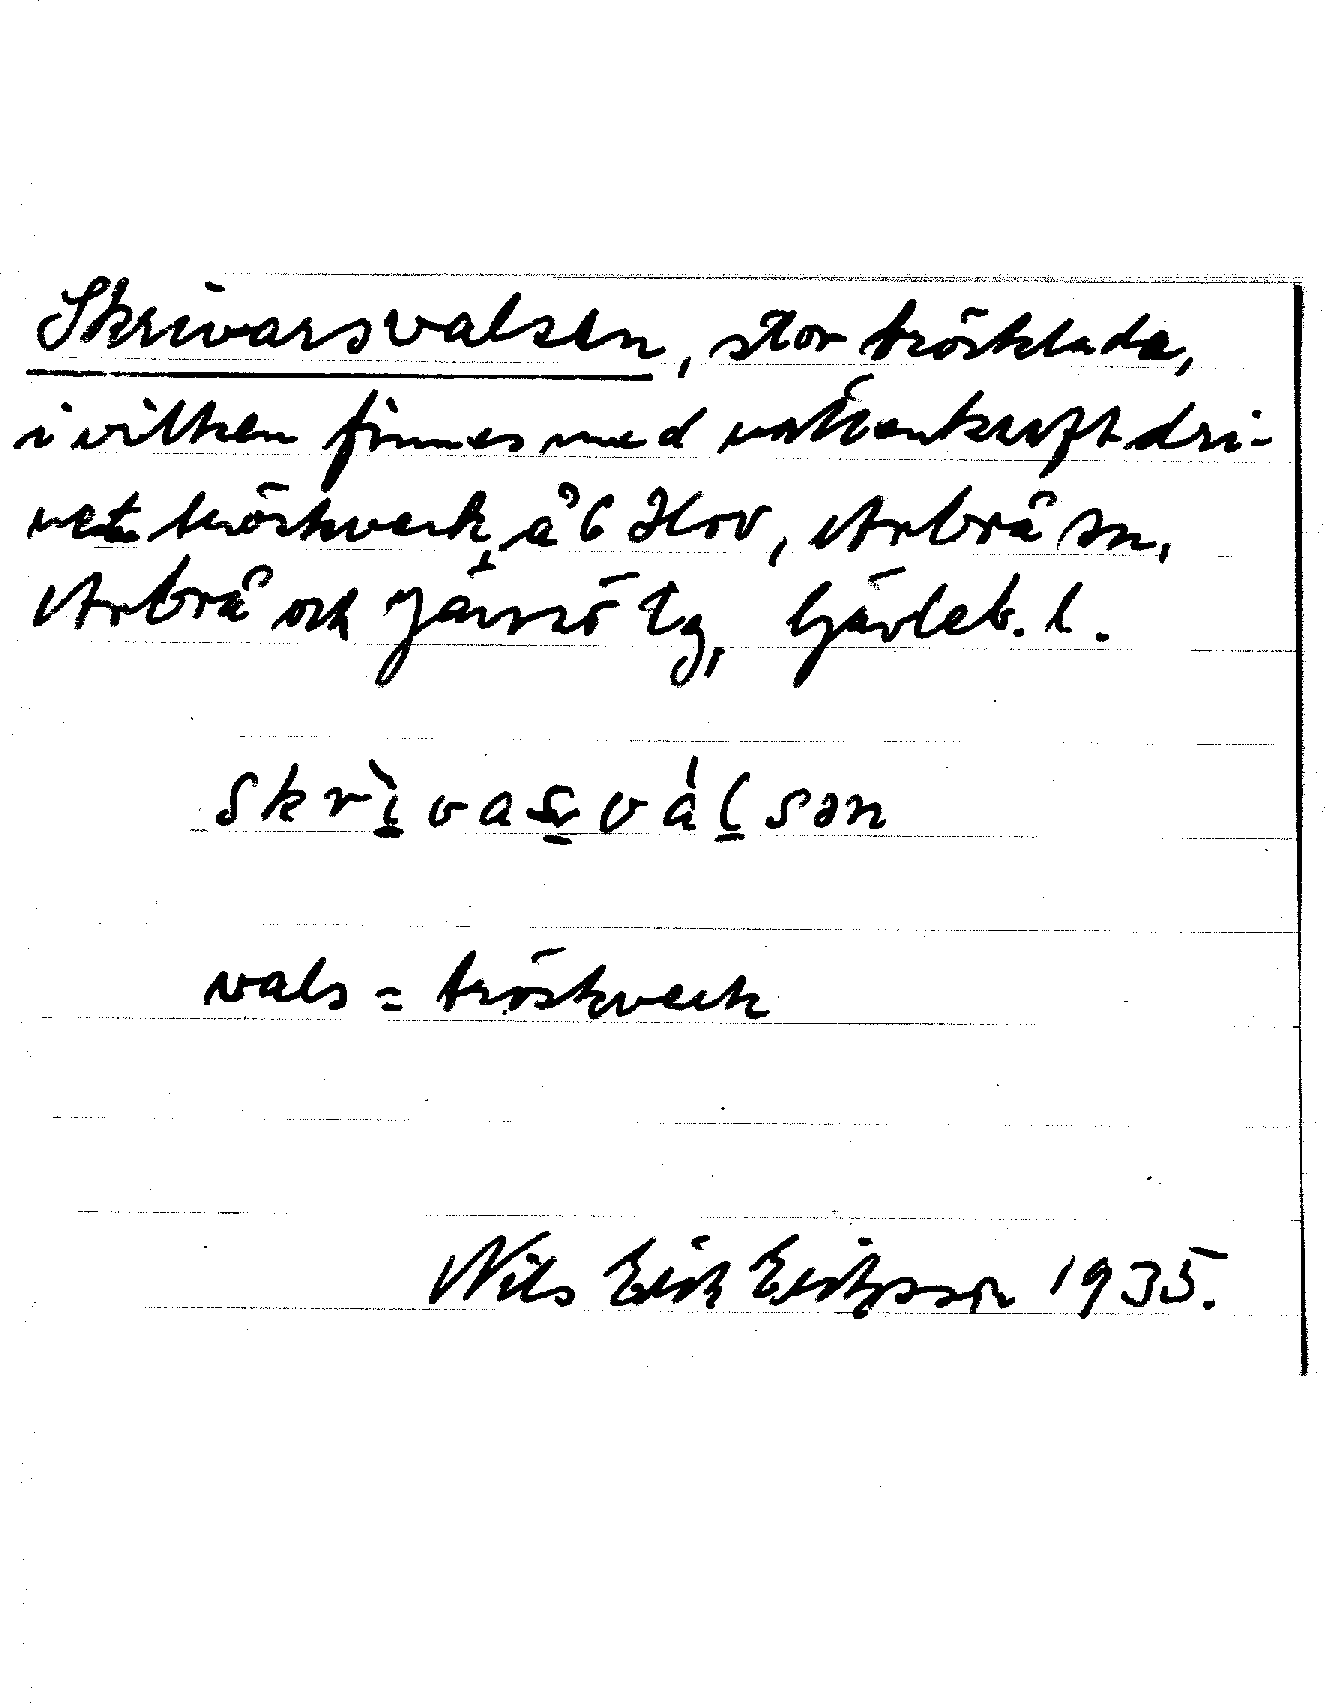 Skrivarsvalsen, stor trösklada,
i vilken finnes med vattenkraft dri-
vet tröskverk, å 6 Hov, Arbrå sn,
Arbrå och Järvsö tg, Gävleb. l.
skrì̠vas̠vál̠sən
vals = tröskverk
Nils Erik Eriksson 1935.